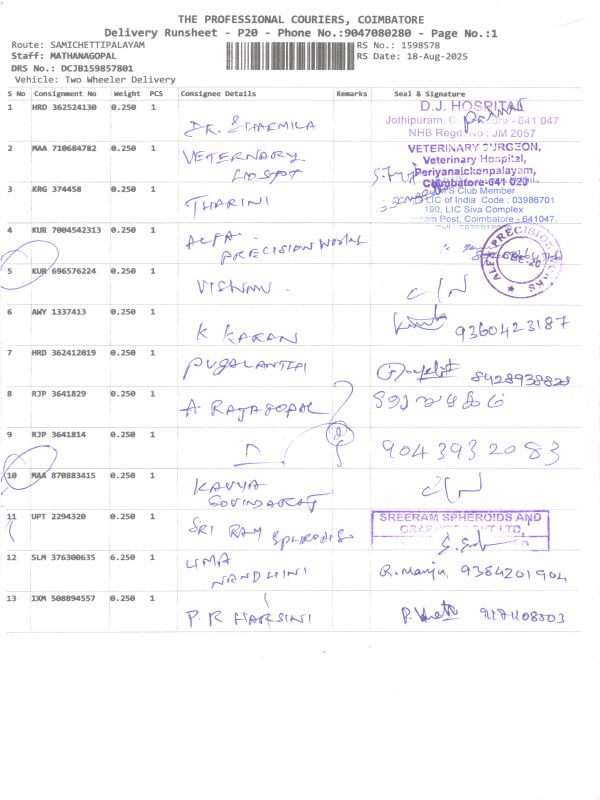 THE PROFESSIONAL COURIERS, COIMBATORE
Delivery Runsheet - P20 - Phone No.:9047080280 - Page No.:1
Route: SAMICHETTIPALAYAM RS No.: 1598578
Staff: MATHANAGOPAL RS Date: 18-Aug-2025
DRS No.: DCJB159857801
Vehicle: Two Wheeler Delivery
S No Consignment No Weight PCS Consignee Details Remarks Seal & Signature
1 HRD 362524130 0.250 1 DR. SHARMILA
D.J. HOSPITAL
Jothipuram, - 641 047
NHB Regd No : JM 2057
2 MAA 710684782 0.250 1 VETERNARY
HOSPT
VETERINARY SURGEON,
Veterinary Hospital,
Periyanaickenpalayam,
Coimbatore-641 020
3 KRG 374458 0.250 1 THARINI
Club Member
LIC of India Code : 03986701
190, LIC Siva Complex
Post, Coimbatore - 641047.
4 KUR 7004542313 0.250 1 ALFA
PRECISION WORKS
ALFA PRECISION WORKS
CBE-20
5 KUR 696576224 0.250 1 VISHNU.
C/N
6 AWY 1337413 0.250 1 K KARAN
9360423187
7 HRD 362412019 0.250 1 PUGALANTHI
8428938828
8 RJP 3641829 0.250 1 A RAJAGOPAL
9 RJP 3641814 0.250 1
2
9043932083
10 MAA 870883415 0.250 1 KAVYA
GOVINDARAJ
C/N
11 UPT 2294320 0.250 1 SRI RAM SPHEROIDS
SREERAM SPHEROIDS AND
LTD,
12 SLM 376300635 6.250 1 UMA
NANDHINI
R. Manju 9384201904
13 IXM 508894557 0.250 1 P. R HARSINI